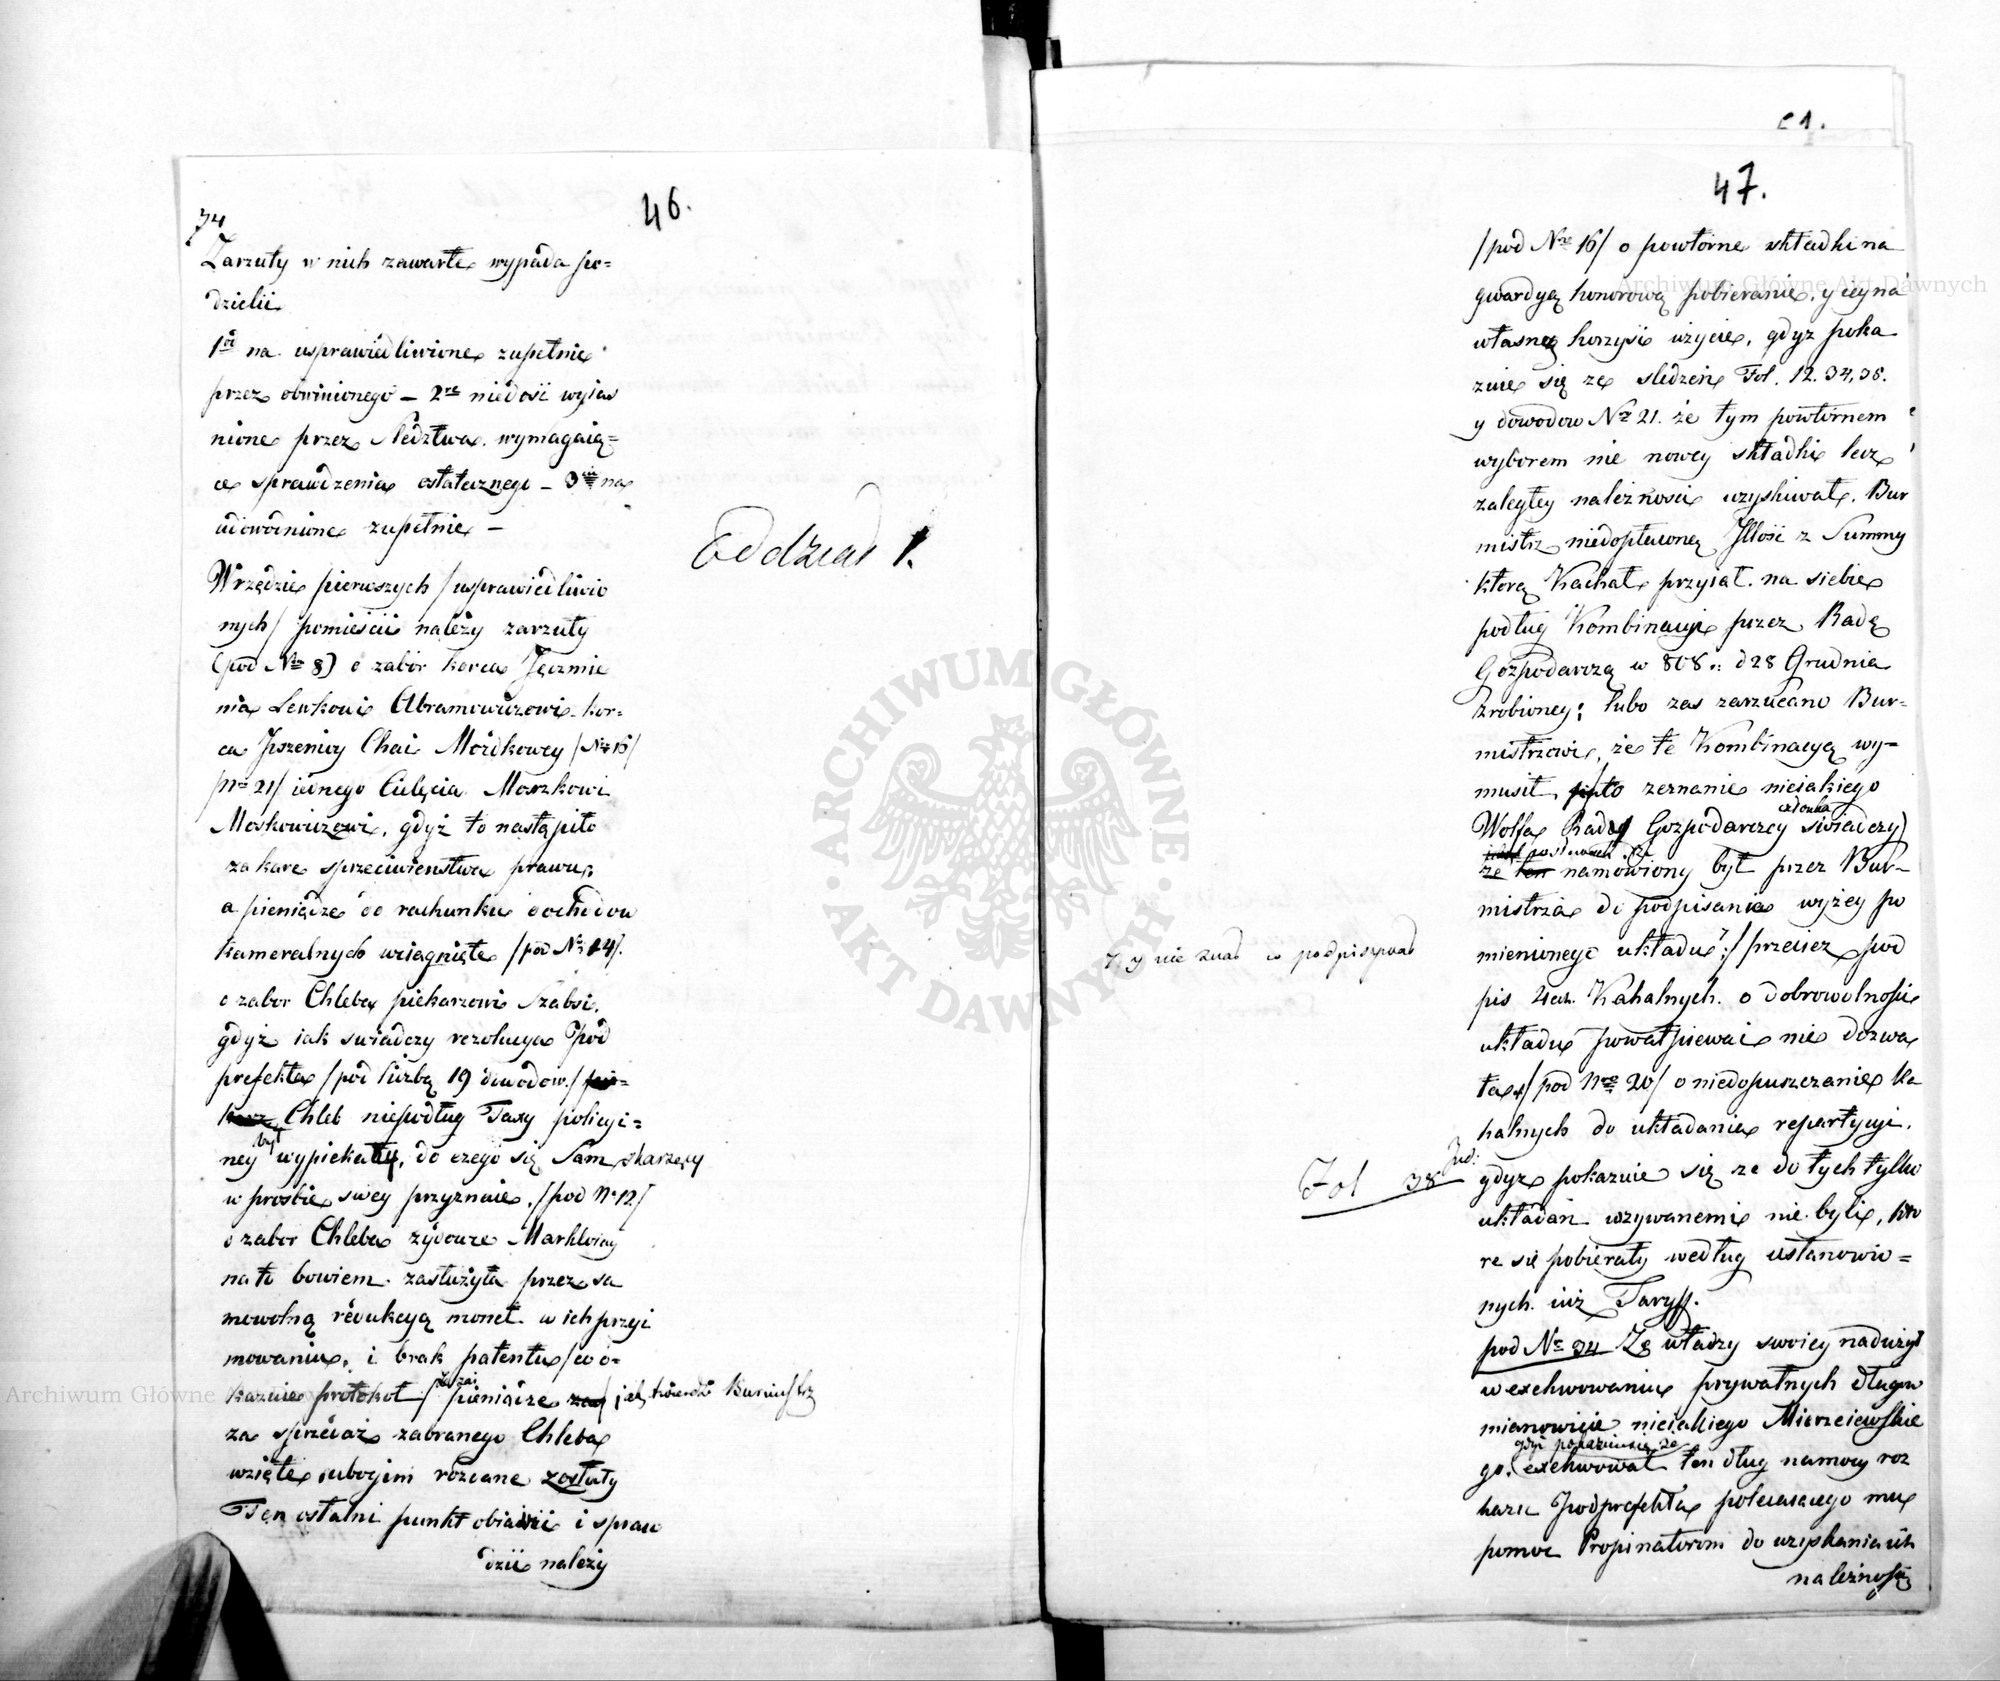 46.
74
Zarzuty w nich zawarte wypada po=
dzielić
1od na usprawiedliwione zupełnie
przez obwinionego – 2re niedość wyias
nione przez śledztwa wymagaią=
ce sprawdzenia ostatecznego – 3cie na
udowodnione zupełnie –
Oddział 1.
W rzędzie pierwszych /usprawiedliwio
nych/ pomieścić należy zarzuty
(pod Nro 8) o zabór korca Jęczmie
nia Lewkowi Abramowiczowi kor=
ca Pszenicy Chai Mordkowey /Nro 16/
/Nro 21/ iednego Cielęcia Moszkowi
Moskowiczowi, gdyż to nastąpiło
za karę sprzeciwieństwa prawu,
a pieniądze do rachunku dochodow
kameralnych wciągnięte /pod Nro 14/.
o zabor Chleba piekarzowi Szabsi,
gdyż iak swiadczy rezolucya Pod
prefekta /pod liczbą 19 dowodow/
Chleb niepodług Taxy policyi=
ney był wypiekały, do czego się Sam skarzący
w prosbie swey przyznaie. /pod No 12/
o zabor Chleba żydowce Marklowey
na to bowiem zasłużyła przez sa
mowolną redukcyą monet w ich przyi
mowaniu, i brak patentu /co o=
kazuie protokoł/ pieniądze jak twierdzi Burmistrz
za sprzedaż zabranego Chleba
wzięte ubogim rozdane zostały
Ten ostatni punkt obiaśnić i spraw
dzić należy
47.
/pod Nro 16/ o powtorne składki na
gwardyą honorową pobieranie, y iey na
własną korzyść użycie, gdyż poka
zuie się ze śledzeń Fol. 12. 34, 38.
y dowodow Nro 21. że tym powtórnem
wyborem nie nowey składki lecz
zaległey należności uzyskiwał, Bur
mistrz niedopłaconą Illość z Summy
którą Kachał przyiął na siebie
podług Kombinacyi przez Radę
Gozpodarczą w 808.: d 28 Grudnia
zrobioney; lubo zas zarzucano Bur=
mistrzowi, że tę Kombinacyą wy=
musił, to zeznanie nieiakiego
członka
Wolfa Rady Gozpodarczey świadczy)
że namówiony był przez Bur=
mistrza do podpisania wyżey po
mienionego układu /: przecież pod
7, y nie znał co podpisywał
pis Kahalnych o dobrowolności
układu powątpiewać nie dozwa
la /pod Nro 20/ o niedopuszczanie ka
halnych do układania repartycyi,
Fol 38 Jnd:
gdyż pokazuie się ze do tych tylko
układań wzywanemi nie byli, któ
re się pobierały według ustanowio=
nych iuż Taryff.
pod Nro 34 Zę władzy swoiey nadużył
w exekwowaniu prywatnych długow
mianowicie nieiakiego Mierzeiewskie
gdyż pokazuie się że
go. exekwował ten dług na mocy roz
kazu Podprefekta polecaiącego mu
pomoc Propinatorom do uzyskania ich
należności
Archiwum Główne Akt Dawnych
ARCHIWUM GŁÓWNE
AKT DAWNYCH
Archiwum Główne Akt Dawnych